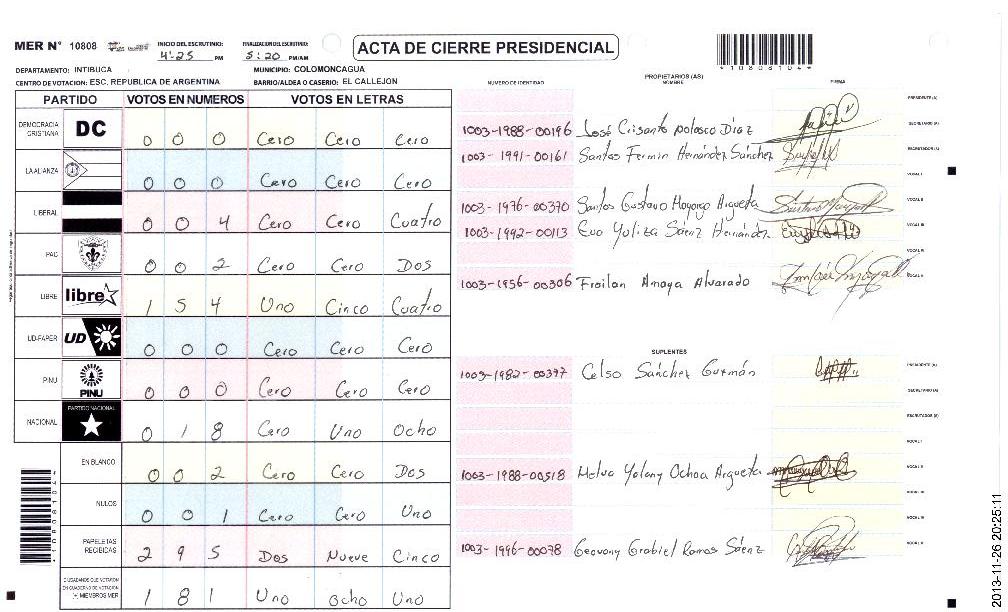 MER N° 10808
INICIO DEL ESCRUTINIO: 4:25 PM
FINALIZACION DEL ESCRUTINIO: 5:20 PM/AM
ACTA DE CIERRE PRESIDENCIAL
*10808104*
DEPARTAMENTO: INTIBUCA
MUNICIPIO: COLOMONCAGUA
CENTRO DE VOTACION: ESC. REPUBLICA DE ARGENTINA
BARRIO/ALDEA O CASERIO: EL CALLEJON
PARTIDO VOTOS EN NUMEROS VOTOS EN LETRAS
DEMOCRACIA CRISTIANA DC 0 0 0 Cero Cero Cero
LA ALIANZA 0 0 0 Cero Cero Cero
LIBERAL 0 0 4 Cero Cero Cuatro
PAC 0 0 2 Cero Cero Dos
LIBRE libre 1 5 4 Uno Cinco Cuatro
UD-FAPER UD 0 0 0 Cero Cero Cero
PINU PINU 0 0 0 Cero Cero Cero
NACIONAL PARTIDO NACIONAL 0 1 8 Cero Uno Ocho
EN BLANCO 0 0 2 Cero Cero Dos
NULOS 0 0 1 Cero Cero Uno
PAPELETAS RECIBIDAS 2 9 5 Dos Nueve Cinco
CIUDADANOS QUE VOTARON EN CUADERNO DE VOTACION (+) MIEMBROS MER 1 8 1 Uno ocho Uno
*10808104*
NUMERO DE IDENTIDAD PROPIETARIOS (AS) NOMBRE FIRMA
PRESIDENTE (A)
1003-1988-00196 José Crisanto Polasco Díaz SECRETARIO (A)
1003-1991-00161 Santos Fermin Hernández Sánchez ESCRUTADOR (A)
VOCAL I
1003-1976-00370 Santos Gustavo Argueta VOCAL II
1003-1992-00113 Eva Yuliza Sáenz Hernández VOCAL III
VOCAL IV
1003-1956-00306 Froilan Amaya Alvarado VOCAL V
SUPLENTES
1003-1982-00397 Celso Sánchez Guzmán PRESIDENTE (A)
SECRETARIO (A)
ESCRUTADOR (A)
VOCAL I
1003-1988-00518 Melva Yolany Ochoa Argueta VOCAL II
VOCAL III
VOCAL IV
1003-1996-00078 Geovany Grabiel Ramos Sáenz VOCAL V
2013-11-26 20:25:11